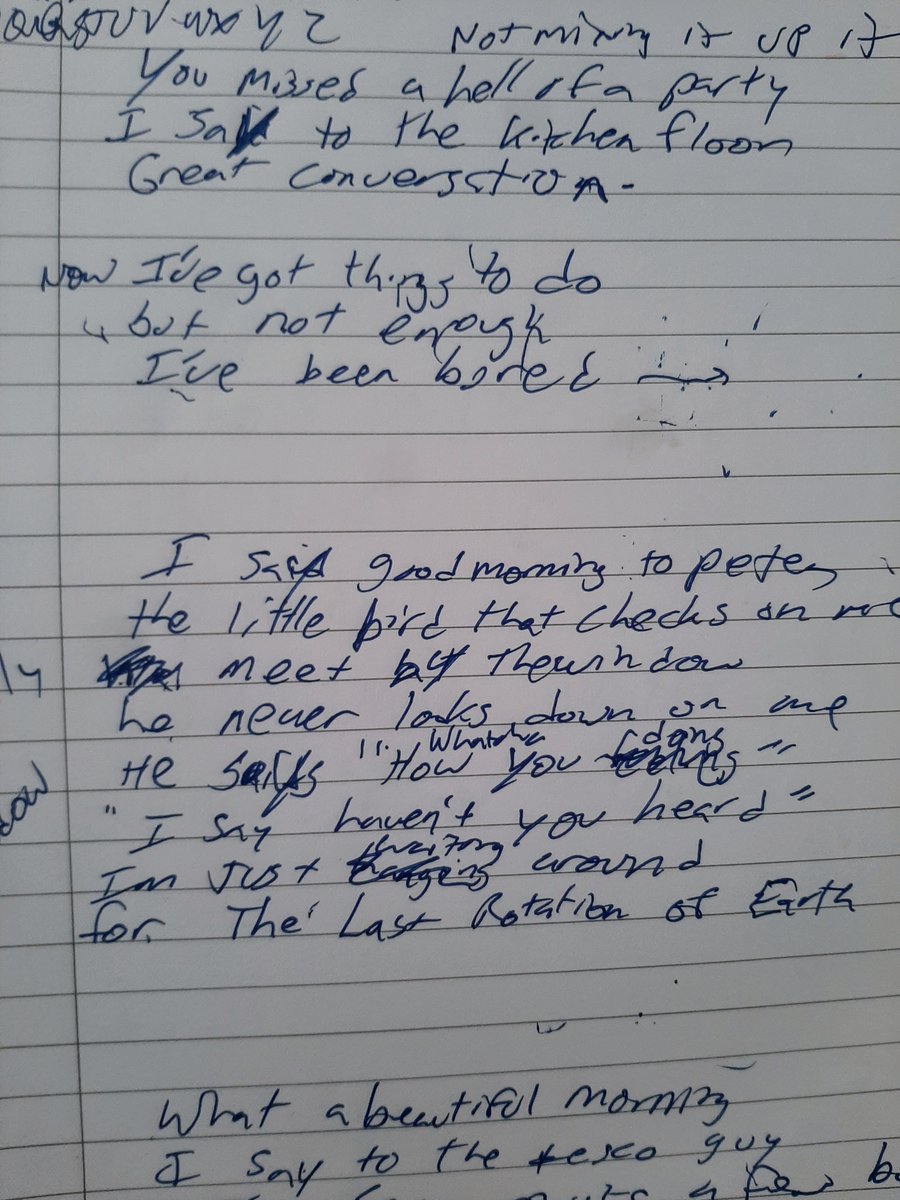 Not mixing it up it
You missed a hell of a party
I Said to the kitchen floor
Great conversation.
Now I've got things to do
but not enough
I've been bored
I said good morning to petey
the little bird that checks on me
meet by the window
he never looks down on me
He says "How you doing"
Whatcha
"I say haven't you heard"
Im just waiting around
for The Last Rotation of Earth
What a beautiful morning
I say to the tesco guy
a few b